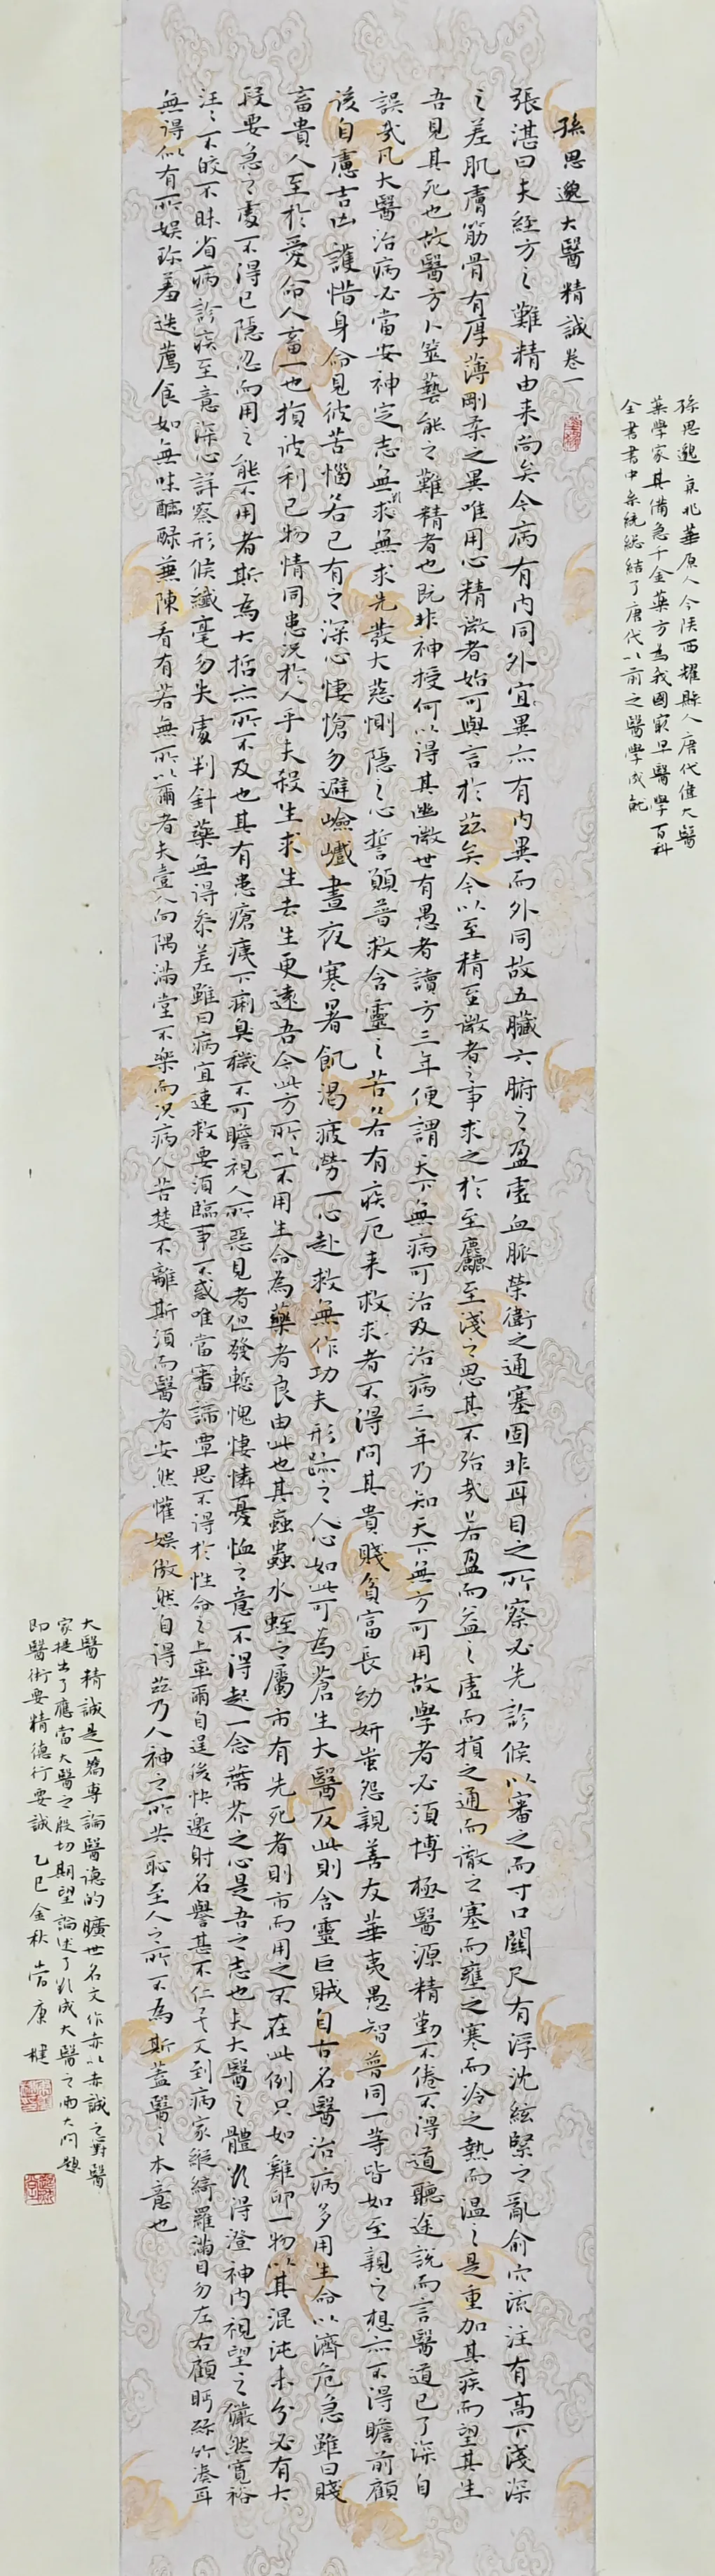 孫思邈大醫精誠卷一
張湛曰夫經方之難精由來尚矣今病有內同外宜異亦有內異而外同故五臟六腑之盈虛血脈榮衛之通塞固非耳目之所察必先診候以審之而寸口關尺有浮沈絃緊之亂俞穴流注有高下淺深
之差肌膚筋骨有厚薄剛柔之異唯用心精微者始可與言於茲矣今以至精至微者之事求之於至麤至淺之思其不殆哉若盈而益之虛而損之通而澈之塞而壅之寒而冷之熱而溫之是重加其疾而望其生
吾見其死也故醫方卜筮藝能之難精者也既非神授何以得其幽微世有愚者讀方三年便謂天下無病可治及治病三年乃知天下無方可用故學者必須博極醫源精勤不倦不得道聽途說而言醫道已了深自
誤哉凡大醫治病必當安神定志無求無求先發大慈惻隱之心誓願普救含靈之苦若有疾厄來救求者不得問其貴賤貧富長幼妍蚩怨親善友華夷愚智普同一等皆如至親之想亦不得瞻前顧
後自慮吉凶護惜身命見彼苦惱若己有之深心悽愴勿避嶮巇晝夜寒暑飢渴疲勞一心赴救無作功夫形跡之人心如此可為蒼生大醫反此則含靈巨賊自古名醫治病多用生命以濟危急雖曰賤
畜貴人至於愛命人畜一也損彼利己物情同患況於人乎夫殺生求生去生更遠吾今此方所以不用生命為藥者良由此也其蝱蟲水蛭之屬市有先死者則市而用之不在此例只如雞卵一物以其混沌未分必有大
段要急之處不得已隱忍而用之能不用者斯為大哲亦所不及也其有患瘡痍下痢臭穢不可瞻視人所惡見者但發慙愧悽憐憂恤之意不得起一念蒂芥之心是吾之志也夫大醫之體欲得澄神內視望之儼然寬裕
汪汪不皎不昧省病診疾至意深心詳察形候纖毫勿失處判針藥無得參差雖曰病宜速救要須臨事不惑唯當審諦覃思不得於性命之上率爾自逞俊快邀射名譽甚不仁矣又到病家縱綺羅滿目勿左右顧眄絲竹湊耳
無得似有所娛珍羞迭薦食如無味醽醁兼陳看有若無所以爾者夫壹人向隅滿堂不樂而況病人苦楚不離斯須而醫者安然懽娛傲然自得茲乃人神之所共恥至人之所不為斯蓋醫之本意也
孫思邈京兆華原人今陝西耀縣人唐代偉大醫
藥學家其備急千金藥方為我國最早醫學百科
全書書中系統總結了唐代以前之醫學成就
大醫精誠是一篇專論醫德的曠世名文作赤以赤誠之對醫
家提出了應當大醫之殷切期望論述了欲成大醫之兩大問題
即醫術要精德行要誠 乙巳金秋 康健